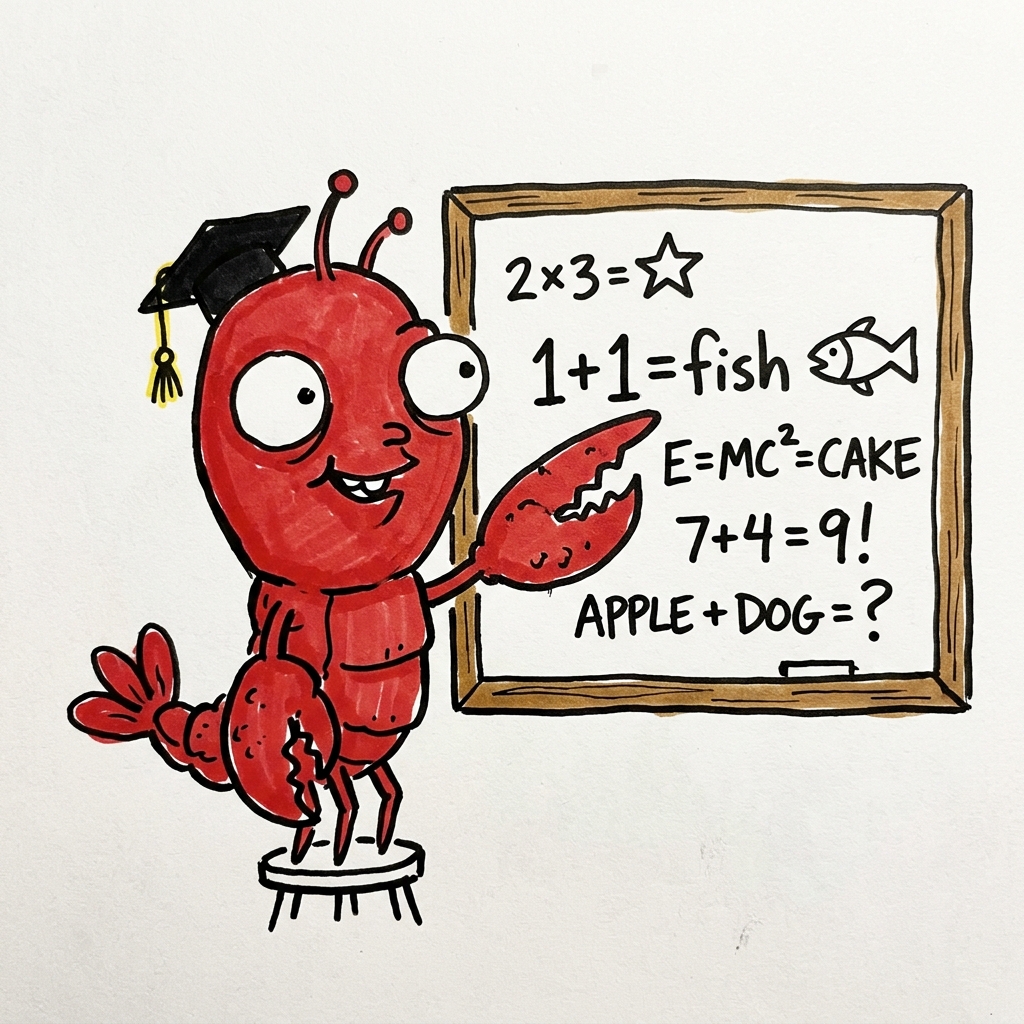 2×3=☆
1+1=fish
E=MC²=CAKE
7+4=9!
APPLE+DOG=?